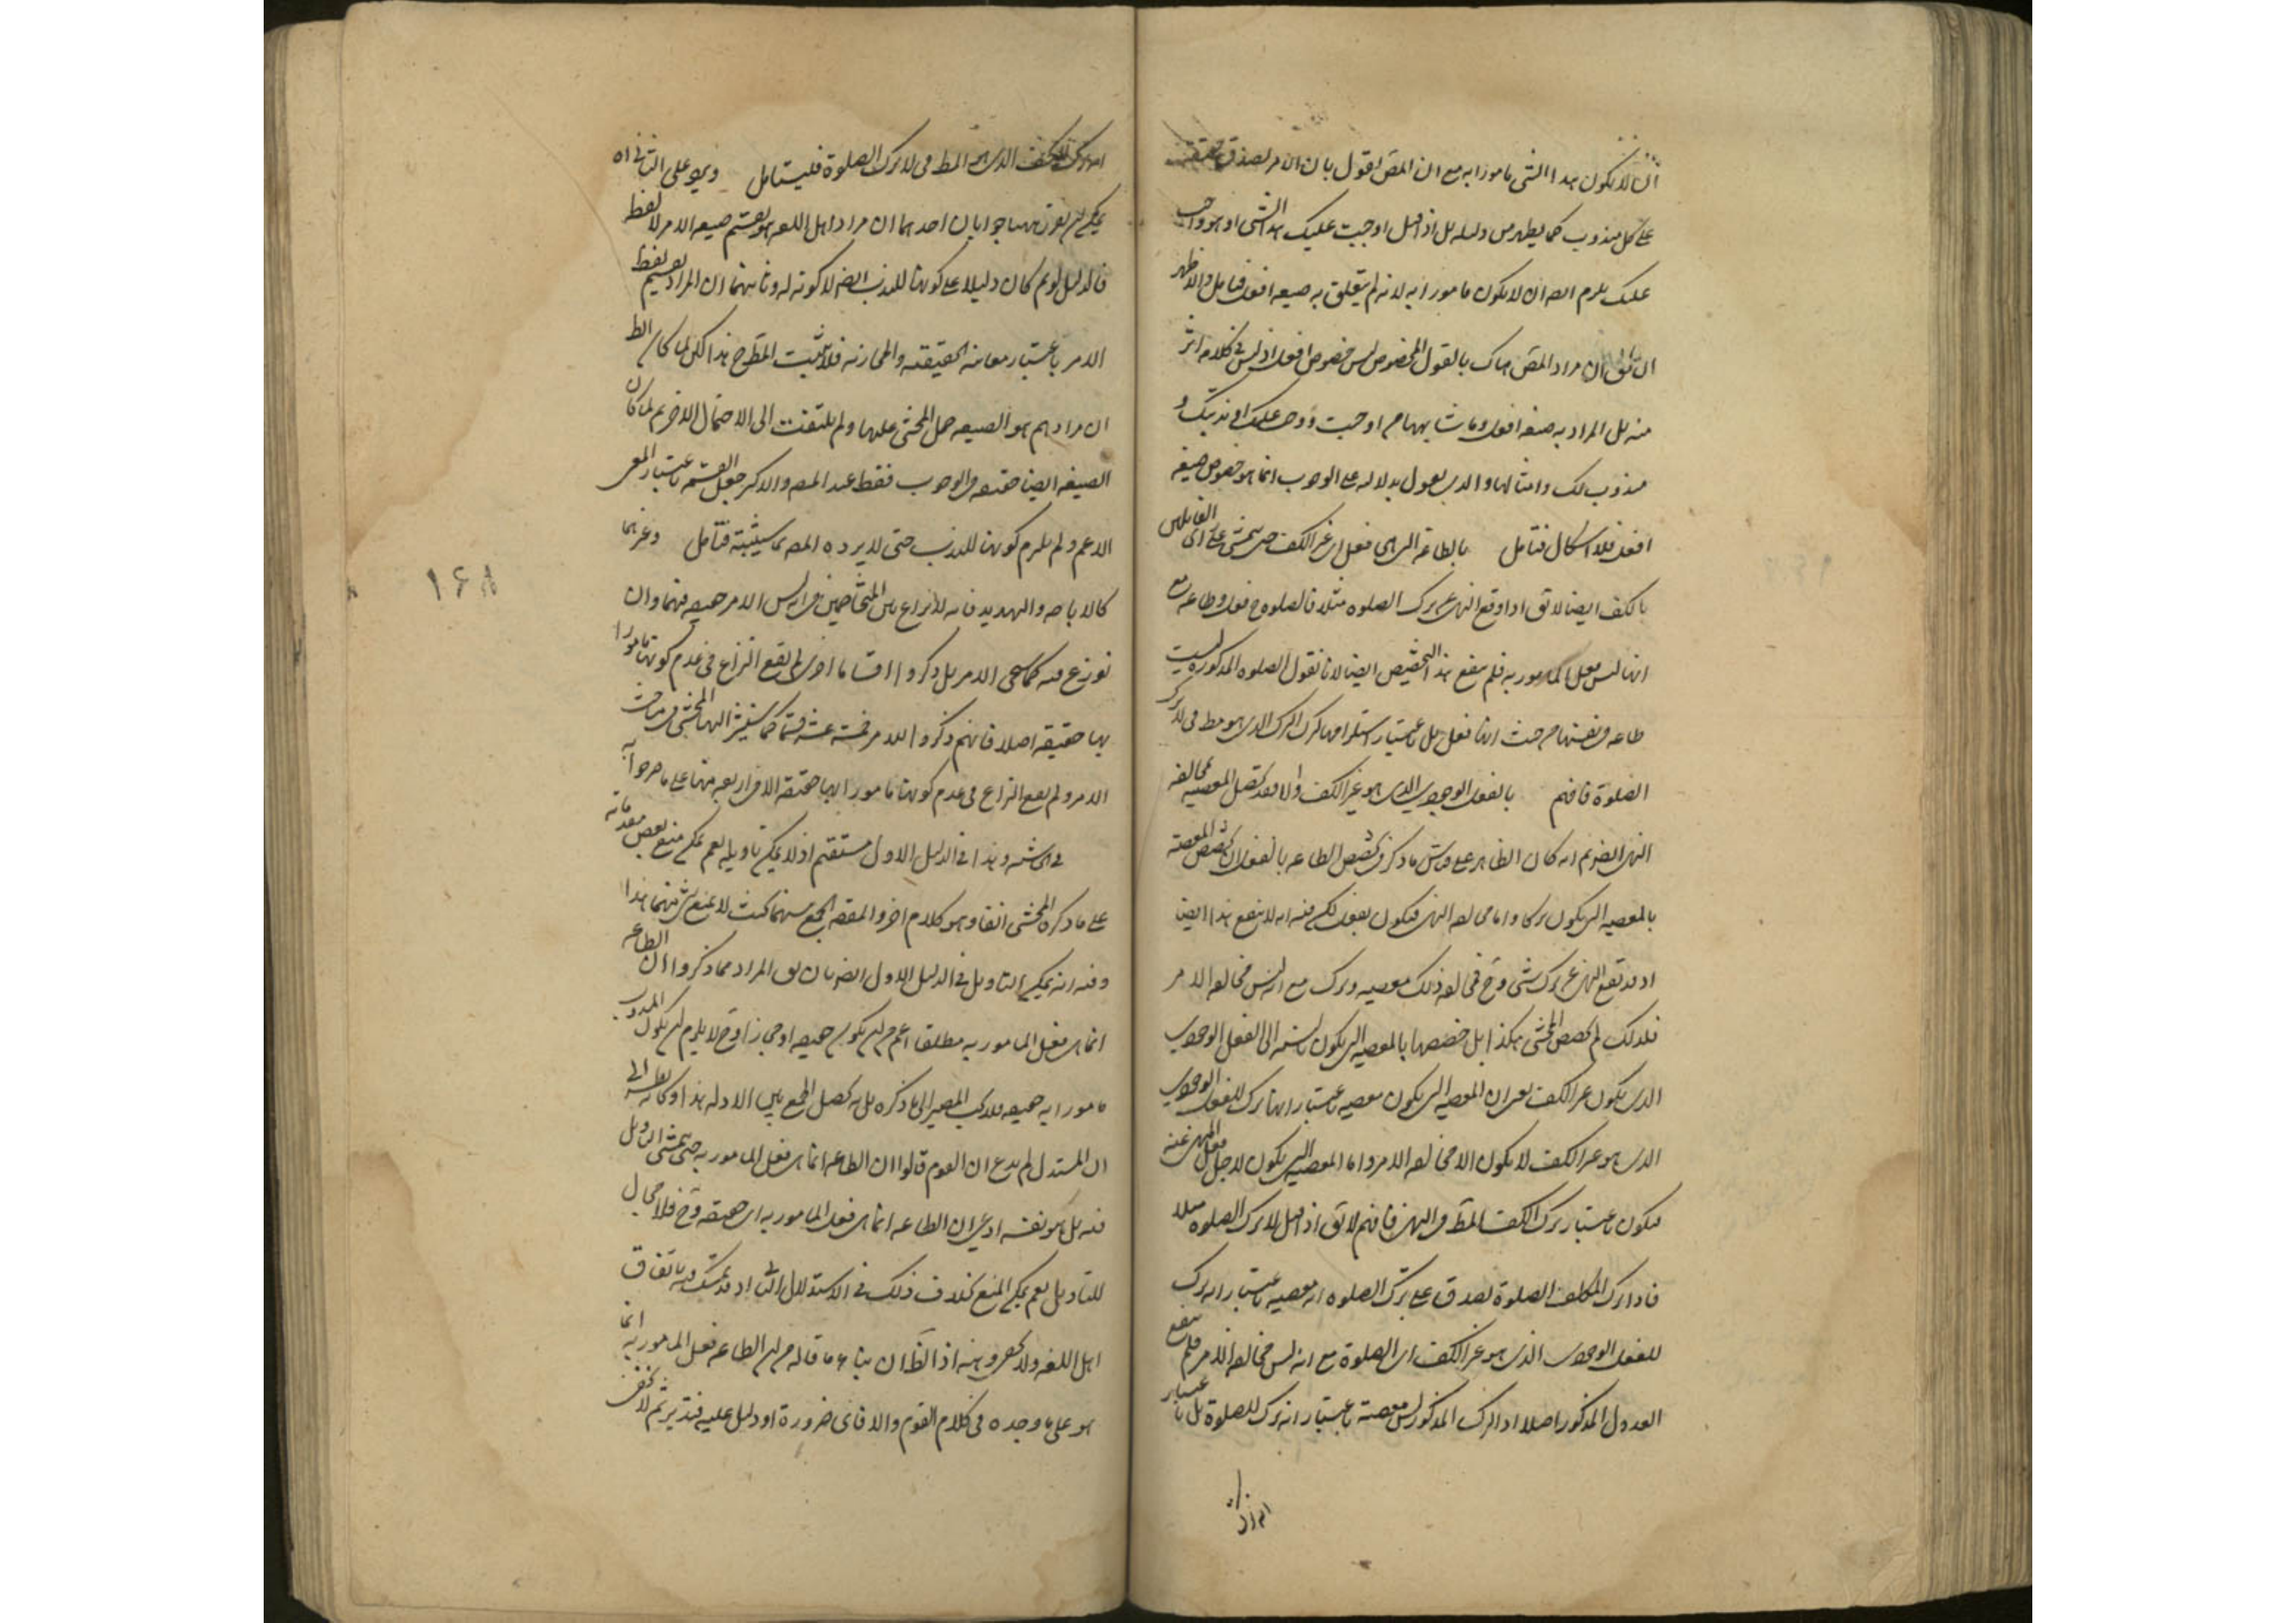 ان لا يكون هذا الشئ مامورا به مع ان المص لا يقول بان الامر يصدق حقيقة
على كل مندوب كما يظهر من دليله بل اذا قيل اوجبت عليك هذا الشئ او هو واجب
عليك يلزم ايضا ان لا يكون مامورا به لانه لم يتعلق به صيغة افعل فتامل والاظهر
ان يقال ان مراد المص هناك بالقول المخصوص ليس خصوص افعل اذ ليس فى كلامه اثر
منه بل المراد به صيغة افعل وما شابهها من اوجبت و ندبتك و
مندوب لك وامثالها والذى يقول بدلالته على الوجوب انما هو خصوص صيغة
افعل فلا اشكال فتامل بالطاعة التى هى فعل اى غير الكف حتى يتمشى على راى القائلين
بالكف ايضا لا يق اذا وقع النهى عن ترك الصلوة مثلا فالصلوة ح فعل وطاعة مع
انها ليس فعل المامور به فلم ينفع هذا التخصيص ايضا لانا نقول الصلوة المذكورة ليست
طاعة فى نفسها من حيث انها فعل بل باعتبار استلزامها لترك الترك الذى هو مط فى لا تترك
الصلوة فافهم بالفعل الوجودى الذى هو غير الكف والا فقد تحصل المعصية بمخالفة
النهى ايضا ثم انه كان الظاهر على قياس ما ذكر فى تخصيص الطاعة بالفعل ان تخصص المعصية
بالمعصية التى يكون تركا واما مخالفة النهى فيكون بفعل لكن فيه انه لا ينفع هذا ايضا
اذ قد يقع النهى عن ترك شئ وح فمخالفة ذلك معصية وترك مع انه ليس مخالفة الامر
فلذلك لم يخصص المحشى هكذا بل خصصها بالمعصية التى يكون بالنسبة الى الفعل الوجودى
الذى يكون غير الكف يعنى ان المعصية التى يكون معصية باعتبار انها ترك للفعل الوجودى
الذى هو غير الكف لا يكون الا مخالفة الامر واما المعصية التى يكون لاجل فعل المنهى عنه
فيكون باعتبار ترك الكف المط فى النهى فافهم لا يق اذا قيل لا تترك الصلوة مثلا
فاذا ترك المكلف الصلوة يصدق على ترك الصلوة انه معصية باعتبار انه ترك
للفعل الوجودى الذى هو غير الكف اى الصلوة مع انه ليس مخالفة الامر فلم ينفع
العدول المذكور اصلا اذ الترك المذكور ليس معصية باعتبار انه ترك للصلوة بل باعتبار
انه ترك للكف الذى هو المط فى لا تترك الصلوة فليتامل ويرد على الثانى اه
يمكن ان يقرر ههنا جوابان احدهما ان مراد اهل اللغة هو تقسيم صيغة الامر لا لفظ
فالدليل لو تم كان دليلا على كونها للندب ايضا لا كونه له وثانيهما ان المراد تقسيم لفظ
الامر باعتبار معانيه الحقيقية والمجازية فلا يثبت المط ح هذا لكن لما كان الظ
ان مرادهم هو الصيغة حمل المحشى عليها ولم يلتفت الى الاحتمال الاخر ثم لما كان
الصيغة ايضا حقيقة فى الوجوب فقط عند المص والاكثر جعل القسمة باعتبار المعنى
الاعم ولم يلزم كونها للندب حتى لا يرد ه المص بما سيثبته فتامل وغيرهما
كالاباحة والتهديد فانه لا نزاع بين المتخاصمين فى انه ليس الامر حقيقة فيهما وان
نوزع فيه كما سيجئ الامر بل ذكروا اقساما اخرى لم يقع النزاع فى عدم كونها مامورا
بها حقيقة اصلا فانهم ذكروا للامر خمسة عشر قسما كما سيشير اليها المحشى فى مباحث
الامر ولم يقع النزاع فى عدم كونها مامورا بها حقيقة الا فى اربعة منها على ما صرحوا به
فى شئ وهذا فى الدليل الاول مستقيم اذ لا يمكن تاويله نعم يمكن منع بعض مقدماته
على ما ذكره المحشى انفا وهو كلام اخر والمقصد الجمع بينهما بحيث لا يمنع شئ منهما هذا
وفيه انه يمكن التاويل فى الدليل الاول ايضا بان يق المراد مما ذكروا ان الطاعة
انما هى فعل المامور به مطلقا اعم من ان يكون حقيقة او مجازا وح لا يلزم ان يكون المندوب
مامورا به حقيقة فلا يجب المصير الى ما ذكره بل به يحصل الجمع بين الادلة هذا وكانه نظر الى
ان المستدل لم يدع ان القوم قالوا ان الطاعة انما هى فعل المامور به حتى يتمشى التاويل
فيه بل هو نفسه ادعى ان الطاعة انما هى فعل المامور به اى حقيقة وح فلا مجال
للتاويل نعم يمكن المنع بخلاف ذلك فى الاستدلال الثانى اذ قد تمسك فيه باتفاق
اهل اللغة ولا يخفى وهنه اذ الظ ان بناء ما قاله من ان الطاعة فعل المامور به انما
هو على ما وجده فى كلام القوم والا فاى ضرورة او دليل عليه فتدبر ثم لا يخفى
۱۶۸